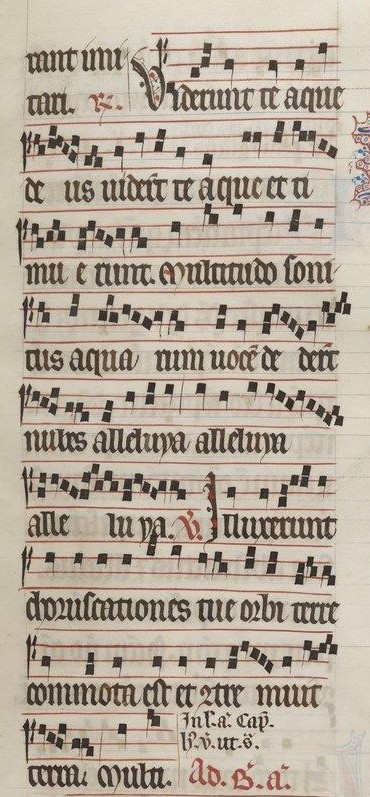 rant imi
tari. R. Viderunt te aque
de us uidert te a que et ti
mu e runt. Multitudo soni
tus aqua rum uocē de dert
nubes alleluya alleluya
alle lu ya. V. Illuxerunt
choruscationes tue orbi terre
commota est et 2tre muit
terra. Multi.
In l. a. Cap.
ut. s.
Ad. B. a.